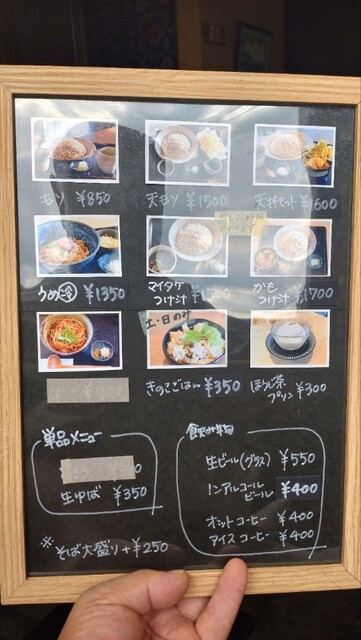 もり ¥850
天もり ¥1500
天丼セット ¥1600
うめ冷 ¥1350
マイタケ
つけ汁
かも
つけ汁 ¥1700
土・日のみ
きのこごはん ¥350
ほうじ茶
プリン ¥300
単品メニュー
生ゆば ¥350
※そば大盛り+¥250
飲み物
生ビール(グラス) ¥550
ノンアルコール
ビール ¥400
ホットコーヒー ¥400
アイスコーヒー ¥400